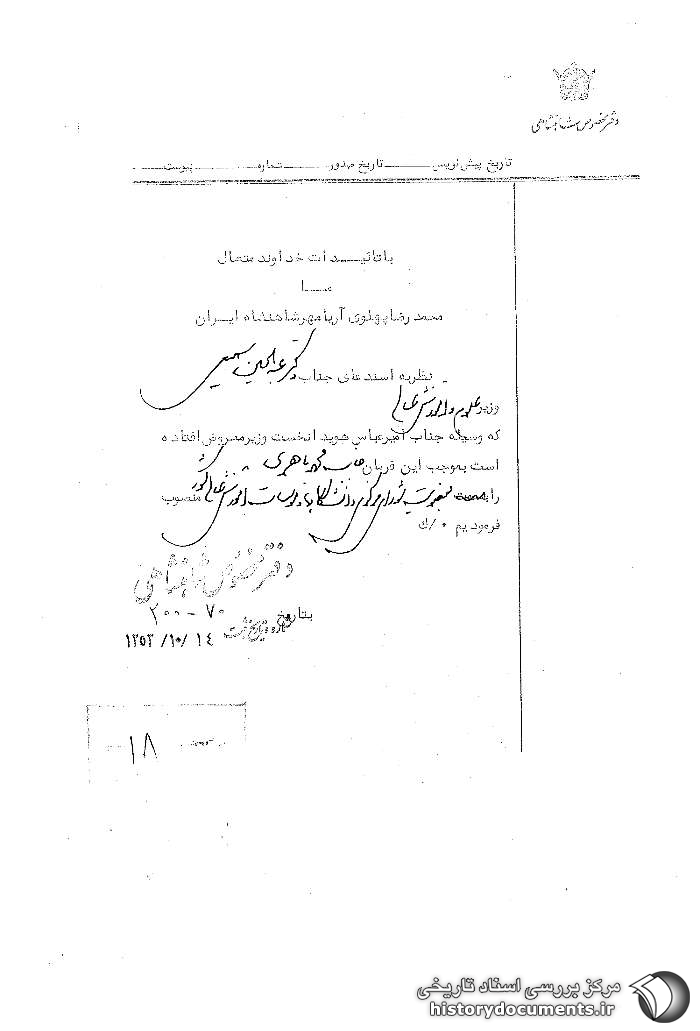 دفتر مخصوص شاهنشاهی
تاریخ پیش نویس تاریخ صدور شماره پیوست
با تائیدات خداوند متعال
ما
محمد رضا پهلوی آریامهر شاهنشاه ایران
نظر به استدعای جناب دکتر عبدالحسین سمیعی
وزیر علوم و آموزش عالی
که وسیله جناب امیرعباس هویدا نخست وزیر معروض افتاده
است بموجب این فرمان جناب محمد باهری
را بسمت عضویت شورای مرکزی دانشگاه‌ها و مؤسسات آموزش عالی کشور منصوب
فرمودیم ۰ /ك
دفتر مخصوص شاهنشاهی
بتاریخ
۲۰۰ - ۷۰
شماره و تاریخ ثبت
۱۳۵۳/۱۰/۱۴
۱۸
مرکز بررسی اسناد تاریخی
historydocuments.ir